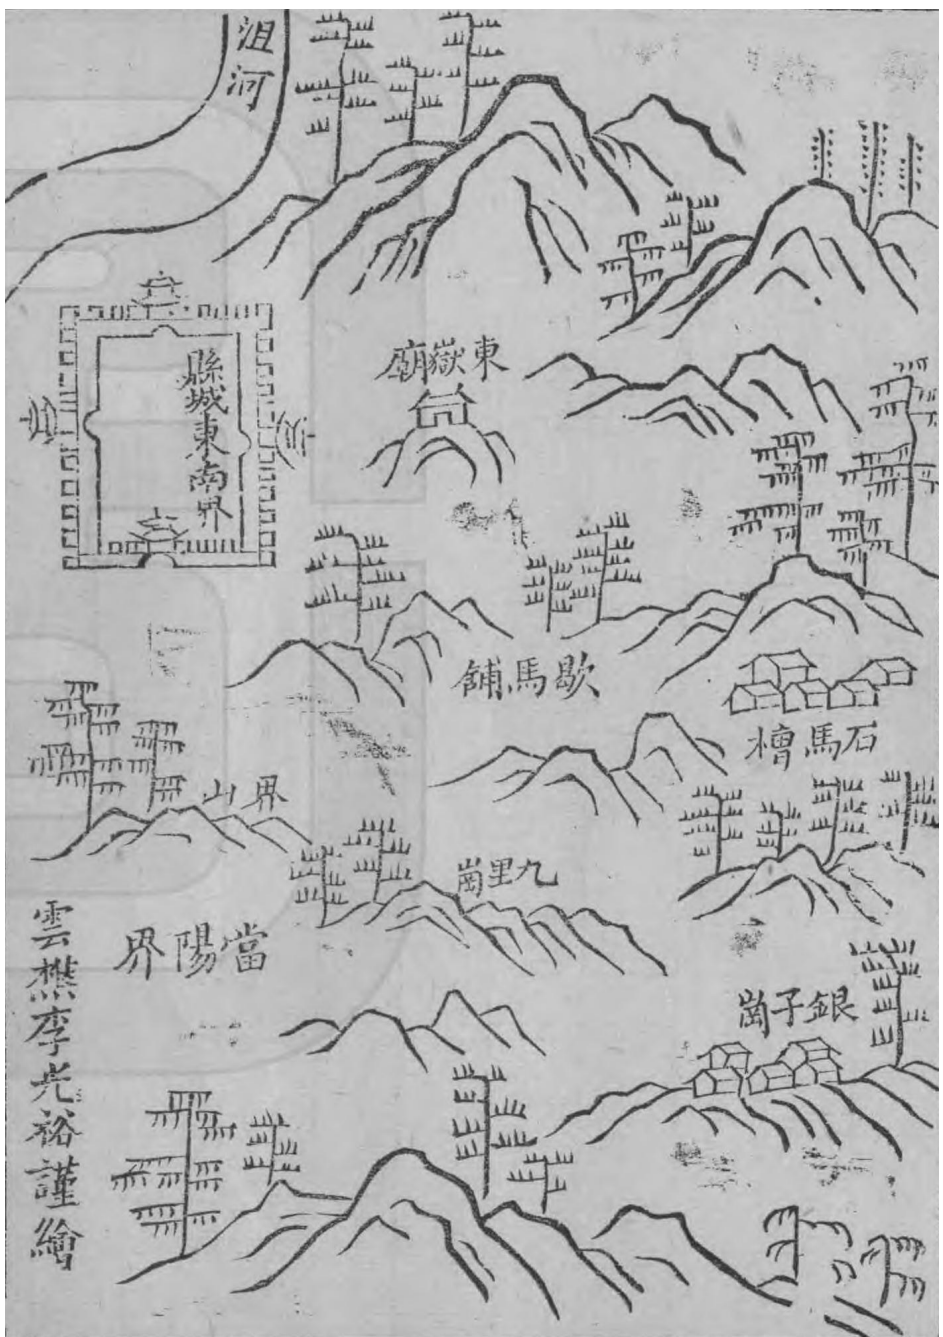 沮河
縣城東南界
東嶽廟
歇馬舖
石馬檜
界山
九里崗
當陽界
銀子崗
雲樵李光裕謹繪